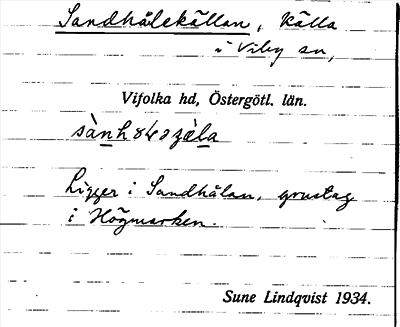 Sandhålekällan, källa
i Viby sn,
Vifolka hd, Östergötl. län.
Ligger i Sandhålan, grustag
i Högmarken.
Sune Lindqvist 1934.